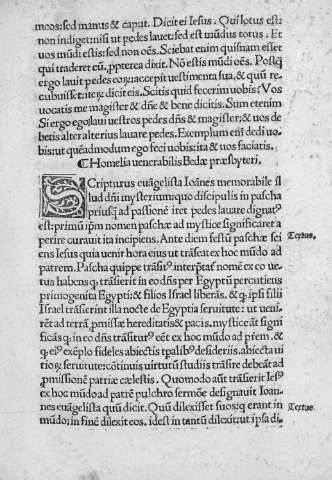 meos: sed manus & caput. Dicit ei Iesus. Qui lotus est:
non indiget: nisi ut pedes lauet: sed est mūdus totus. Et
uos mūdi estis: sed non oēs. Sciebat enim quisnam esset
qui traderet eum, ppterea dixit. Nō estis mūdi oēs. Postq̃
ergo lauit pedes eoꝝ: accepit uestimenta sua, & quū re
cubuisset: iteꝝ dicit eis. Scitis quid fecerim uobis? Vos
uocatis me magister & dñe & bene dicitis. Sum etenim
Si ergo ego laui uestros pedes dñs & magister: & uos de
betis alter alterius lauare pedes. Exemplum eni dedi uo
bis: ut quēadmodum ego feci uobis: ita & uos faciatis.
¶ Homelia venerabilis Bedæ præsbyteri.
SCripturus euāgelista Ioānes memorabile il
lud dñi mysterium: quo discipulis in pascha
priusq̃ ad passionē iret pedes lauare dignatꝰ
est: primū ipm nomen paschæ ad mystice significaret a
perire curauit ita incipiens. Ante diem festū paschæ sci Textus.
ens Iesus quia venit hora eius ut trāseat ex hoc mūdo ad
patrem. Pascha quippe trāsitꝰ interptatꝰ nomē ex eo ve
tus habens q, trāsierit in eo dñs per Egyptū percutiens
primogenita Egypti: & filios Israel liberās. & q, ipsi filii
Israel trāsierint illa nocte de Egyptia seruitute: ut veni-
rēt ad terrā pmissæ hereditatis & pacis. mystice āt signi
ficās q, in eo dñs trāsiturꝰ eēt ex hoc mūdo ad prem, &
q, eiꝰ exēplo fideles abiectis tpalibꝰ desideriis. abiecta ui
tioꝝ seruitute: cōtinuis virtutū studiis trāsire debeāt ad
pmissionē patriæ cælestis. Quomodo aūt trāsierit Iesꝰ
ex hoc mūdo ad patrē pulchro sermōe designauit Ioan-
nes euāgelista quū dicit. Quū dilexisset suos: q erant in Textus
mūdo: in finē dilexit eos. idest in tantū dilexit: ut ipsa di